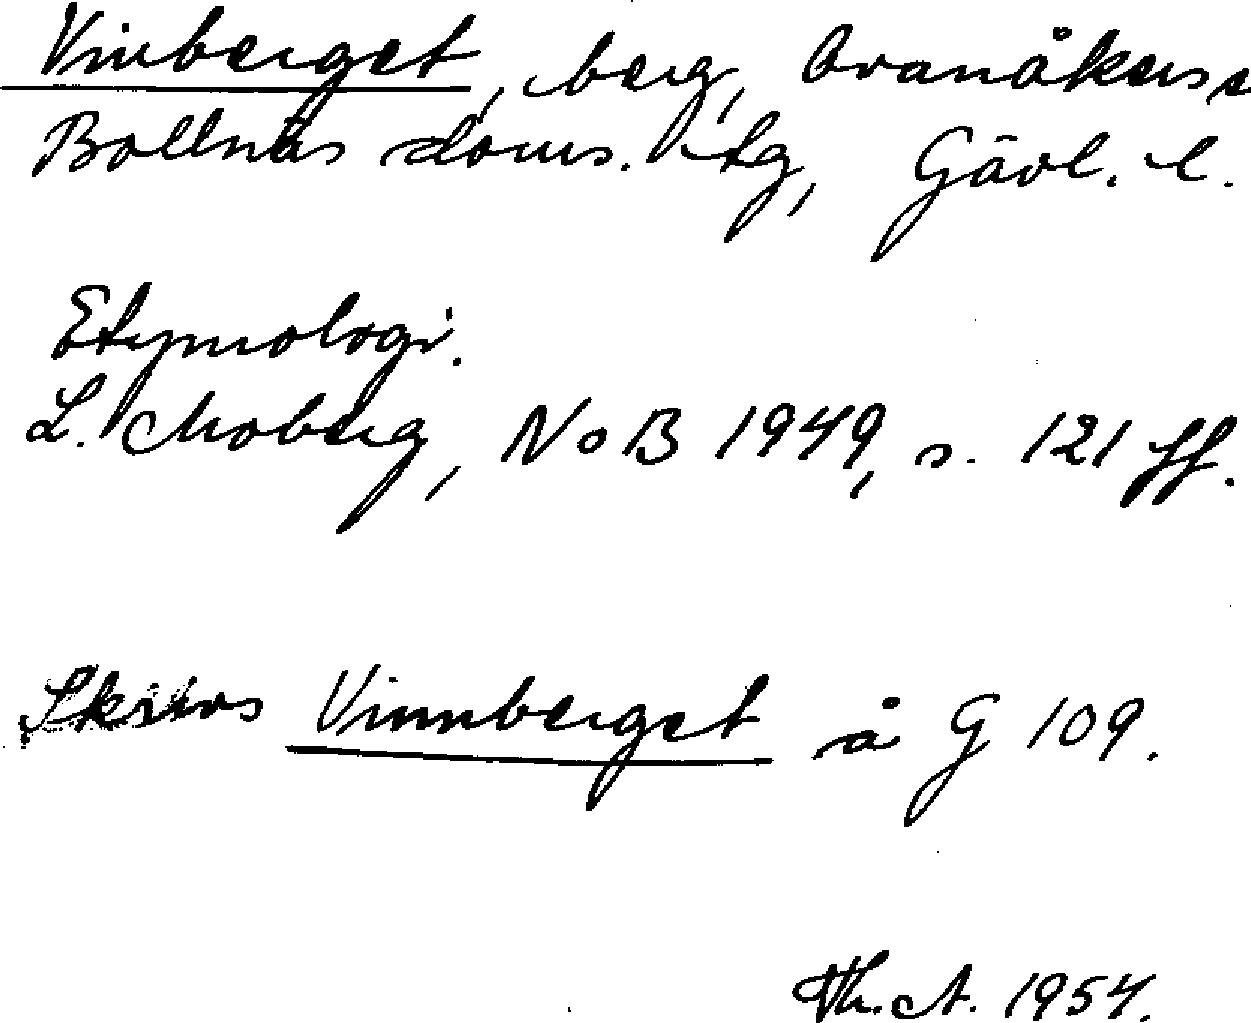 Vinberget, berg, Ovanåkers s
Bollnäs doms. htg, Gävl. l.
Etymologi.
L. Moberg, NoB 1949, s. 121 ff.
Skrivs Vinnberget å G 109.
Th. A. 1954.